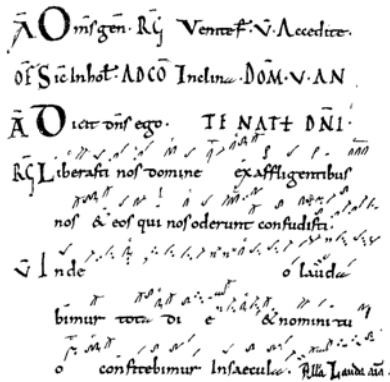 A Om̄s gen̄. R̄G Venite f. V. Accedite.
OF̄ Sic̄ in hol. AD CŌ Inclina DOM̄. V. AN
Ā Dicit dn̄s ego. TE NAT DN̄I.
R̄G Liberasti nos domine ex affligentibus
nos & eos qui nos oderunt confudisti.
V̄ Inde o lauda
bimur tota di e & nomini tu
o confitebimur In saecula. Alla Lauda